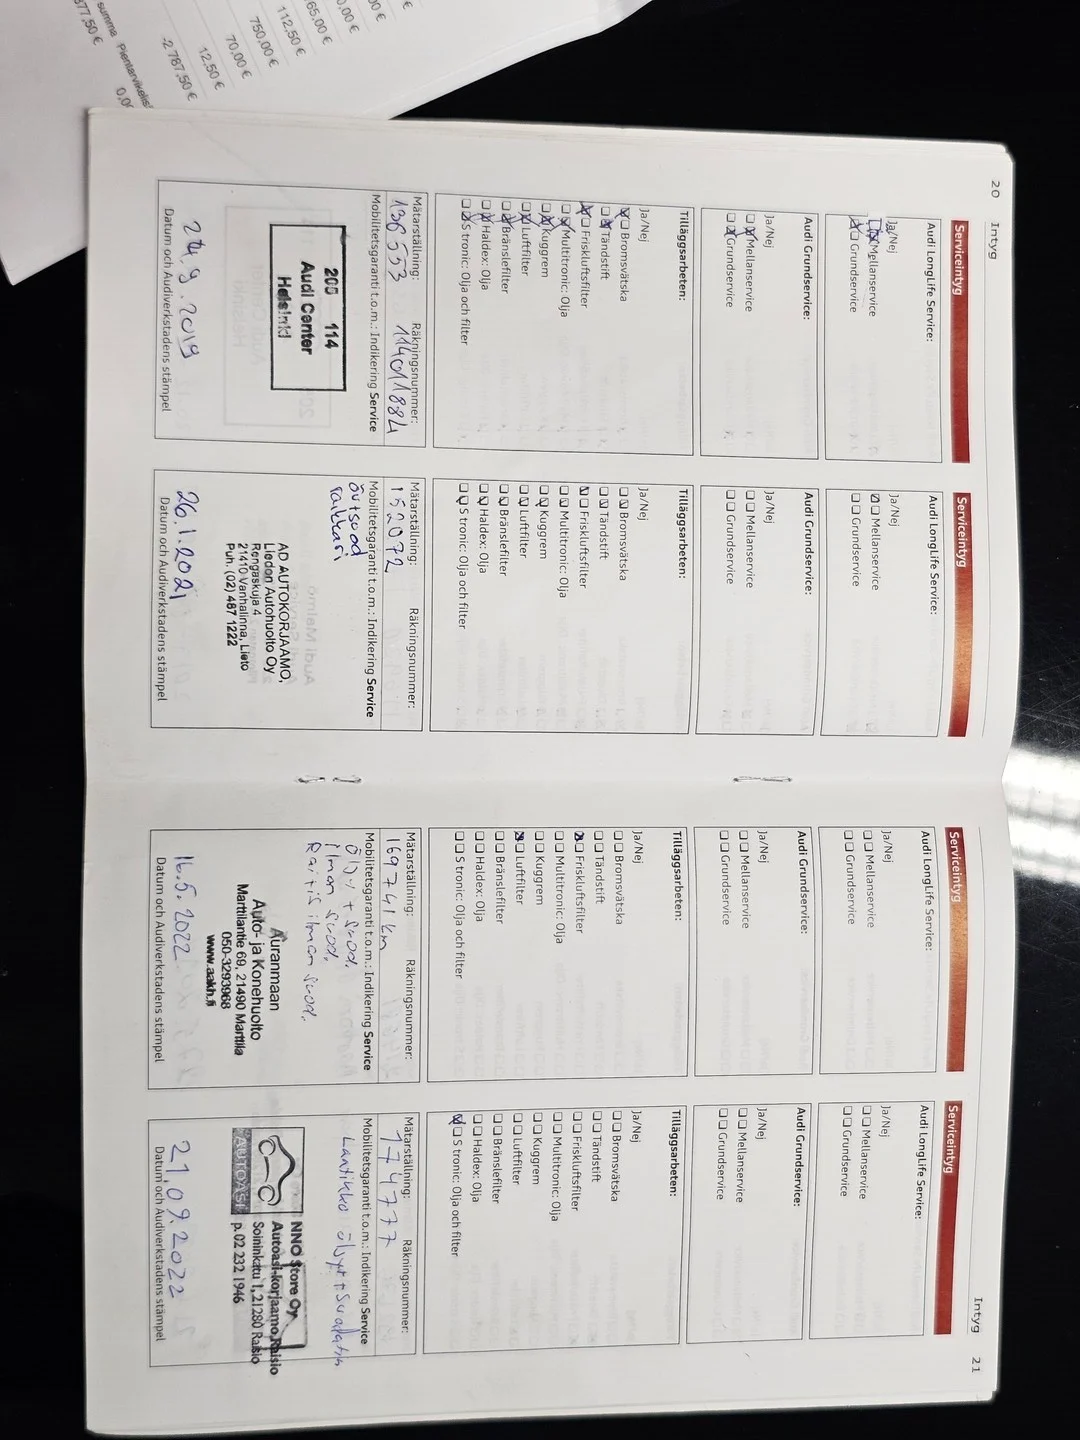 summa Pientarvikelis
377,50 €
-2 787,50 €
12,50 €
70,00 €
750,00 €
112,50 €
65,00 €
0,00 €
20 Intyg
Serviceintyg
Audi LongLife Service:
Ja/Nej
Mellanservice
Grundservice
Audi Grundservice:
Ja/Nej
Mellanservice
Grundservice
Tilläggsarbeten:
Ja/Nej
Bromsvätska
Tändstift
Friskluftsfilter
Multitronic: Olja
Kuggrem
Luftfilter
Bränslefilter
Haldex: Olja
S tronic: Olja och filter
Mätarställning: Räkningsnummer:
136553 11401884
Mobilitetsgaranti t.o.m.: Indikering Service
205 114
Audi Center
Helsinki
24.9.2019
Datum och Audiverkstadens stämpel
Serviceintyg
Audi LongLife Service:
Ja/Nej
Mellanservice
Grundservice
Audi Grundservice:
Ja/Nej
Mellanservice
Grundservice
Tilläggsarbeten:
Ja/Nej
Bromsvätska
Tändstift
Friskluftsfilter
Multitronic: Olja
Kuggrem
Luftfilter
Bränslefilter
Haldex: Olja
S tronic: Olja och filter
Mätarställning: Räkningsnummer:
152072
Mobilitetsgaranti t.o.m.: Indikering Service
AD AUTOKORJAAMO,
Liedon Autohuolto Oy
Rengaskuja 4
21410 Vanhalinna, Lieto
Puh. (02) 487 1222
26.1.2021
Datum och Audiverkstadens stämpel
Intyg 21
Serviceintyg
Audi LongLife Service:
Ja/Nej
Mellanservice
Grundservice
Audi Grundservice:
Ja/Nej
Mellanservice
Grundservice
Tilläggsarbeten:
Ja/Nej
Bromsvätska
Tändstift
Friskluftsfilter
Multitronic: Olja
Kuggrem
Luftfilter
Bränslefilter
Haldex: Olja
S tronic: Olja och filter
Mätarställning: Räkningsnummer:
169741 km
Mobilitetsgaranti t.o.m.: Indikering Service
Öljy + suod.
ilman suod.
Raitis ilman suod.
Auranmaan
Auto- ja Konehuolto
Marttilantie 69, 21490 Marttila
050-3293968
www.aakh.fi
16.5.2022
Datum och Audiverkstadens stämpel
Serviceintyg
Audi LongLife Service:
Ja/Nej
Mellanservice
Grundservice
Audi Grundservice:
Ja/Nej
Mellanservice
Grundservice
Tilläggsarbeten:
Ja/Nej
Bromsvätska
Tändstift
Friskluftsfilter
Multitronic: Olja
Kuggrem
Luftfilter
Bränslefilter
Haldex: Olja
S tronic: Olja och filter
Mätarställning: Räkningsnummer:
174777
Mobilitetsgaranti t.o.m.: Indikering Service
Laatikko öljyt + suodatin
AUTOASI
NNO Store Oy
Autoasi-korjaamo Raisio
Soininkatu 1, 21280 Raisio
p. 02 232 1946
21.09.2022
Datum och Audiverkstadens stämpel